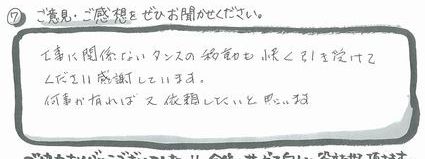 ⑦ ご意見・ご感想をぜひお聞かせください。
工事に関係ないタンスの移動も快く引き受けて
くださり感謝しています。
何事か有れば又依頼したいと思います